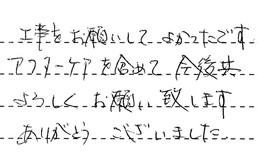 工事をお願いしてよかったです
アフターケアを含めて今後共
よろしくお願い致します
ありがとうございました